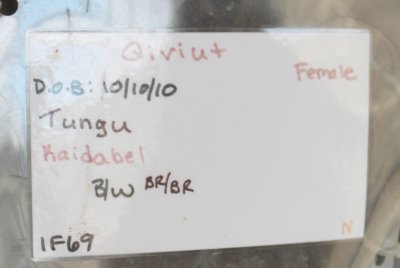 Qiviut
Female
D.O.B: 10/10/10
Tungu
Kaidabel
B/W BR/BR
1F69
N